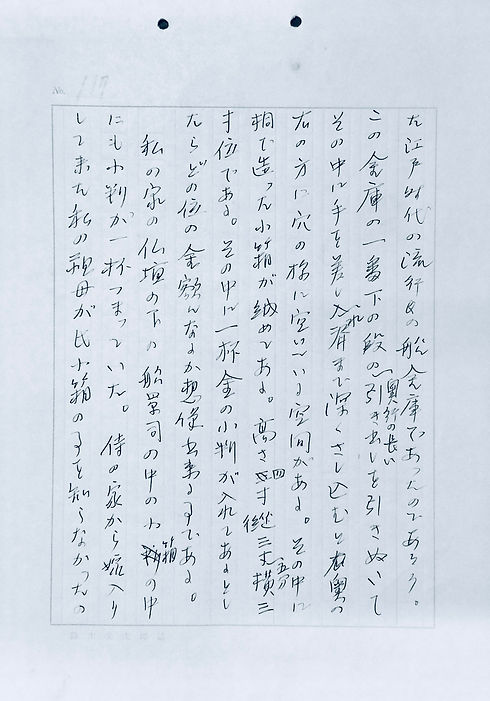 No. 117
た江戸時代の流行の船金庫であったのであろう。
この金庫の一番下の段の奥行の長い引き出しを引きぬいて
その中に手を差し入れ肩まで深くさし込むと右奥の
右の方に穴の様に空いている空間がある。その中に
桐で造った小箱が納めてある。高さ四寸縦三寸五分横三
寸位である。その中に一杯金の小判が入れてあるとし
たらどの位の金額になるか想像出来る事である。
私の家の仏壇の下の船箪司の中の小箱の中
にも小判が一杯つまっていた。侍の家から嫁入り
して来た私の祖母が此小箱の事を知らなかったの